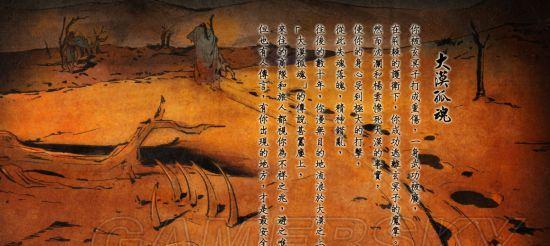 大漠孤魂
你被玄冥子打成重傷，一身武功被廢，
在 的護衛下，你成功逃離玄冥子的魔掌。
然而 瀾和楊雲慘死大漠的事實，
使你的身心受到極大的打擊，
從此失魂落魄，精神錯亂。
往後的數十年，你漫無目的地流浪於大漠之
「大漠孤魂」的傳說甚囂塵上，
來往的商隊和旅人都視你為不祥之兆，避之唯
但也有人傳言，有你出現的地方，才是最安全
GAMERSKY